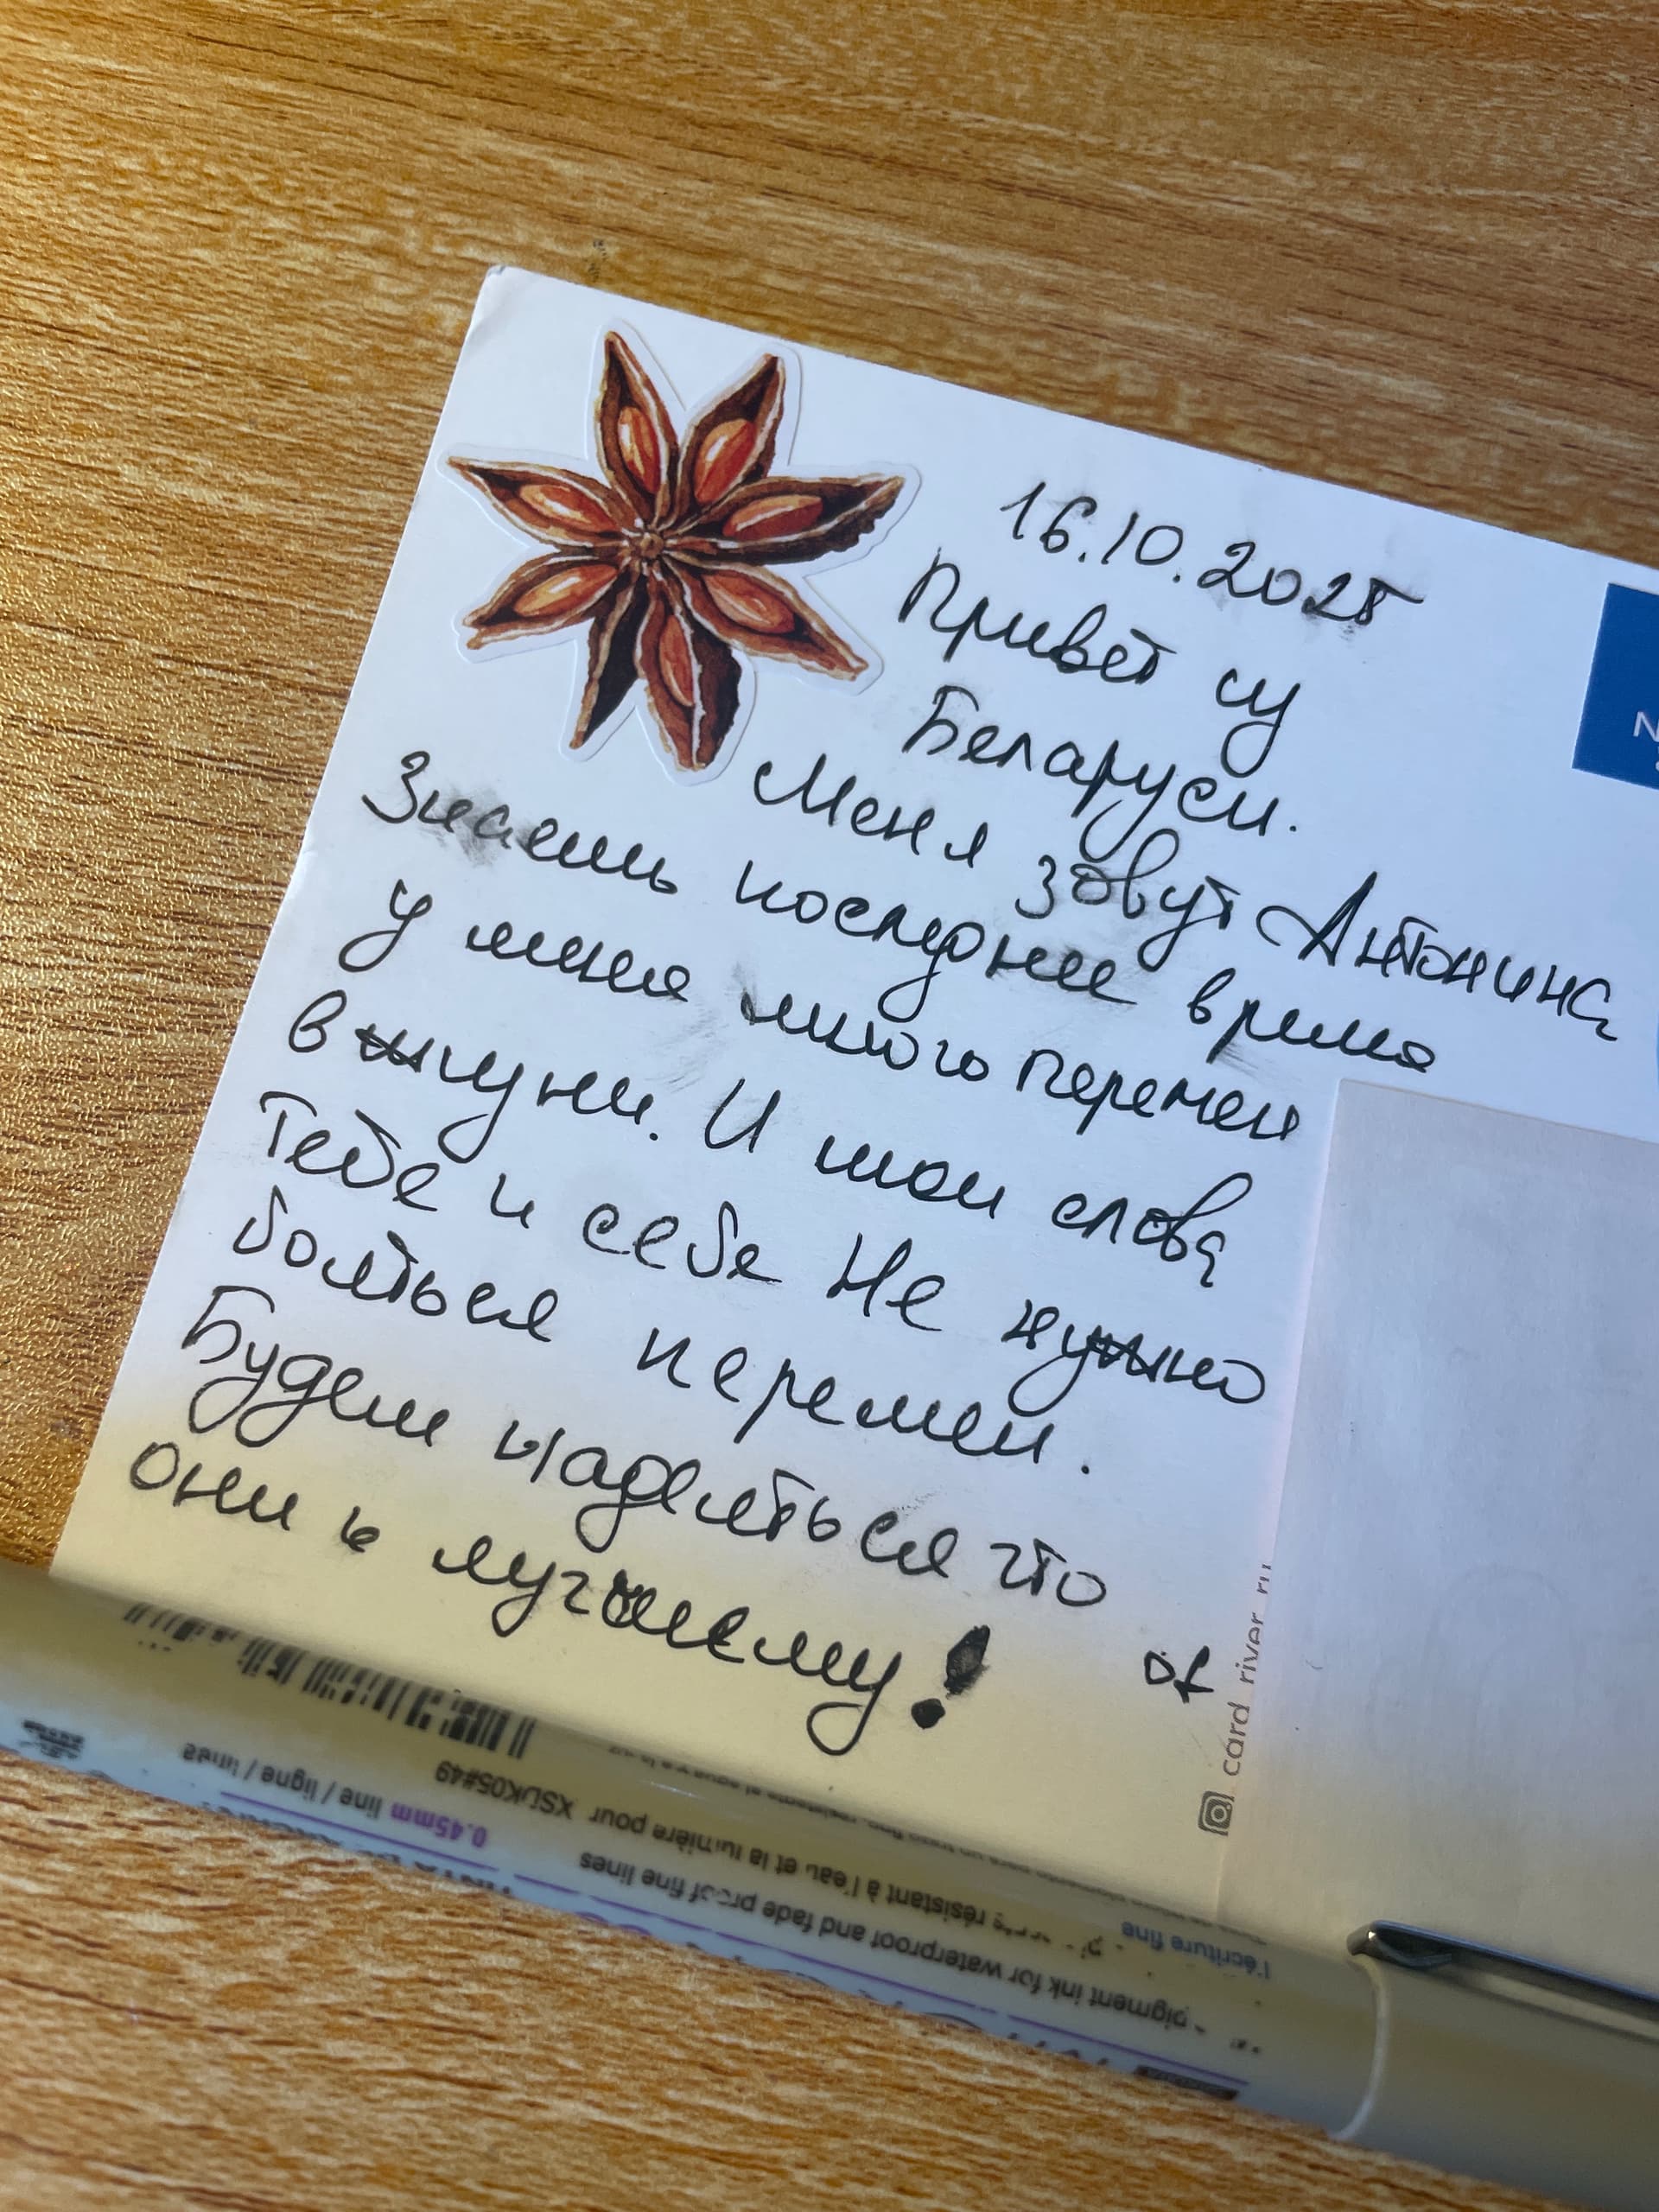 16.10.2025
Привет из
Беларуси.
Меня зовут Антонина
Знаешь последнее время
у меня много перемен
в жизни. И мои слова
тебе и себе Не нужно
бояться перемен.
Будем надеяться что
они к лучшему!
card_river_ru
0.45mm line / ligne / línea
XSDK05#49
pigment ink for waterproof and fade proof fine lines
résistant à l'eau et la lumière pour
l'écriture fine